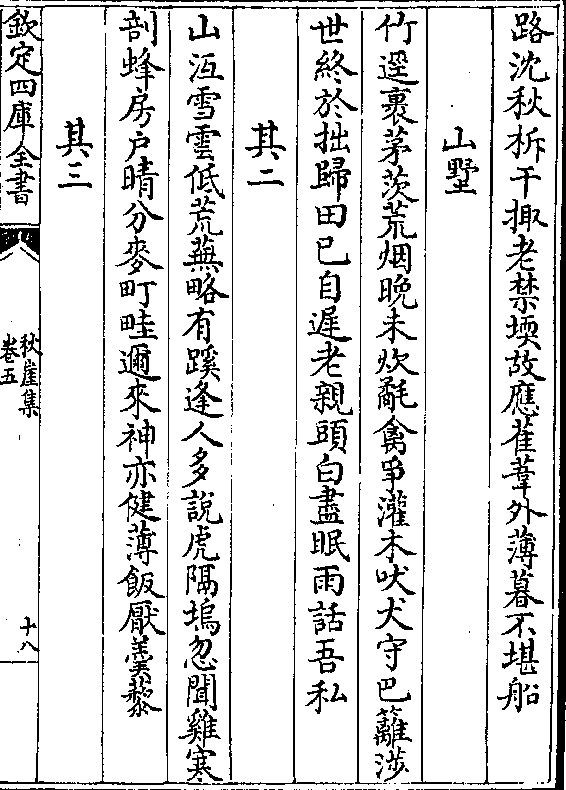 路沈秋柝干掫老禁堧故應萑葦外薄暮不堪船
山墅
竹逕裹茅茨荒烟晚未炊毻禽爭灌木吠犬守巴籬涉
世終於拙歸田已自遲老親頭白盡眠雨話吾私
其二
山沍雪雲低荒蕪略有蹊逢人多說虎隔塢忽聞雞寒
剖蜂房户晴分麥町畦邇來神亦健薄飯厭羮藜
其三
欽定四庫全書
秋崖集
卷五
十八